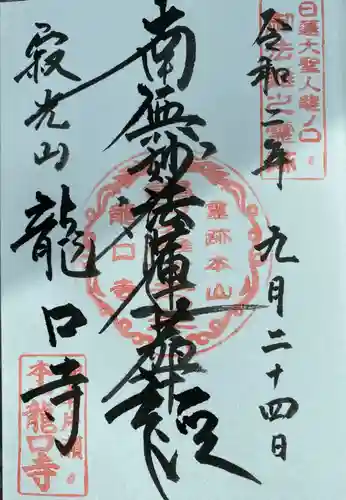 日蓮大聖人龍ノ口
御法難之霊跡
令和二年 九月二十四日
南無妙法蓮華経
霊跡本山
龍口寺
寂光山 龍口寺
龍口寺